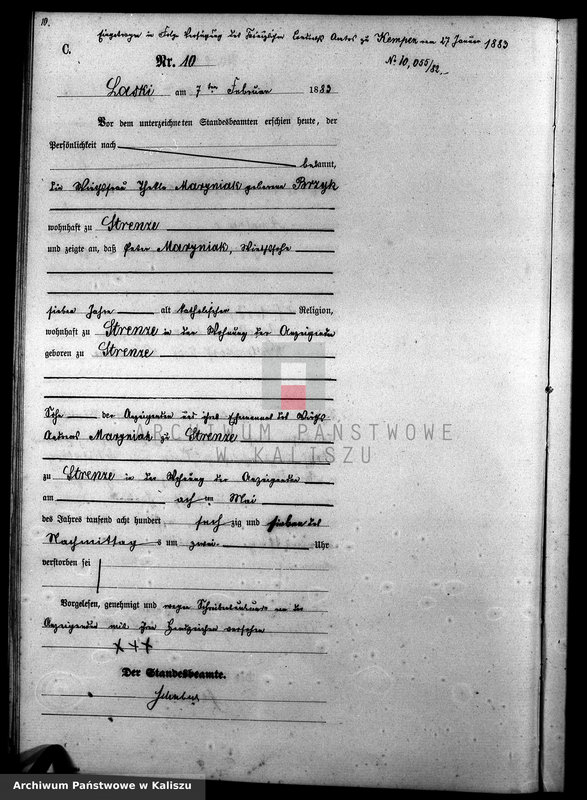 10.
Eingetragen in Folge Verfügung des Königlichen Landraths Amtes zu Kempen vom 27 Januar 1883
C.
№ 10,055/82.
Nr. 10
Laski am 7ten Februar 1883
Vor dem unterzeichneten Standesbeamten erschien heute, der
Persönlichkeit nach
bekannt,
die Wirthsfrau Thekla Maryniak geborene Brzyk
wohnhaft zu Strenze
und zeigte an, daß Peter Maryniak, Wirthssohn
sieben Jahre alt katholischer Religion,
wohnhaft zu Strenze in der Wohnung der Anzeigenden
geboren zu Strenze
Sohn der Anzeigenden und ihres Ehemannes des Wirths
Andreas Maryniak zu Strenze
zu Strenze in der Wohnung der Anzeigenden
am ten Mai
des Jahres tausend acht hundert zig und sieben
Nachmittag s um zwei Uhr
verstorben sei
Vorgelesen, genehmigt und wegen Schreibensunkunde von der
Anzeigenden mit ihrem Handzeichen versehen
XXX
Der Standesbeamte.
ARCHIWUM PAŃSTWOWE
W KALISZU
Archiwum Państwowe w Kaliszu